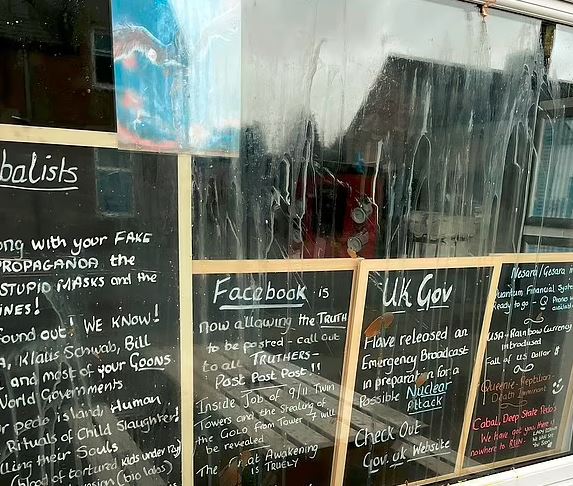 balists
ong with your FAKE
PROPAGANDA the
STUPID MASKS and the
INES!
found out! WE KNOW!
A, Klaus Schwab, Bill
and most of your GOONS.
World Governments
r pedo island, Human
Rituals of Child Slaughter!
lling their Souls
(blood of tortured kids under
(bio labs)
Facebook is
now allowing the TRUTH
to be posted - call out
to all TRUTHERS-
Post Post Post!!
Inside Job of 9/11 Twin
Towers and the Stealing of
the GOLD from Tower 7 will
be revealed
The Awakening
is TRUELY
UK Gov
Have released an
Emergency Broadcast
in preparation for a
Possible Nuclear
Attack
Check Out
Gov.uk Website
Nesara/Gesara
Quantum Financial System
Ready to go - Q Phone
USA - Rainbow Currency
Introduced
Fall of US Dollar
Queenie-Reptilian-
Death Imminent
Cabal, Deep State Pedos
We have got you there
nowhere to RUN.